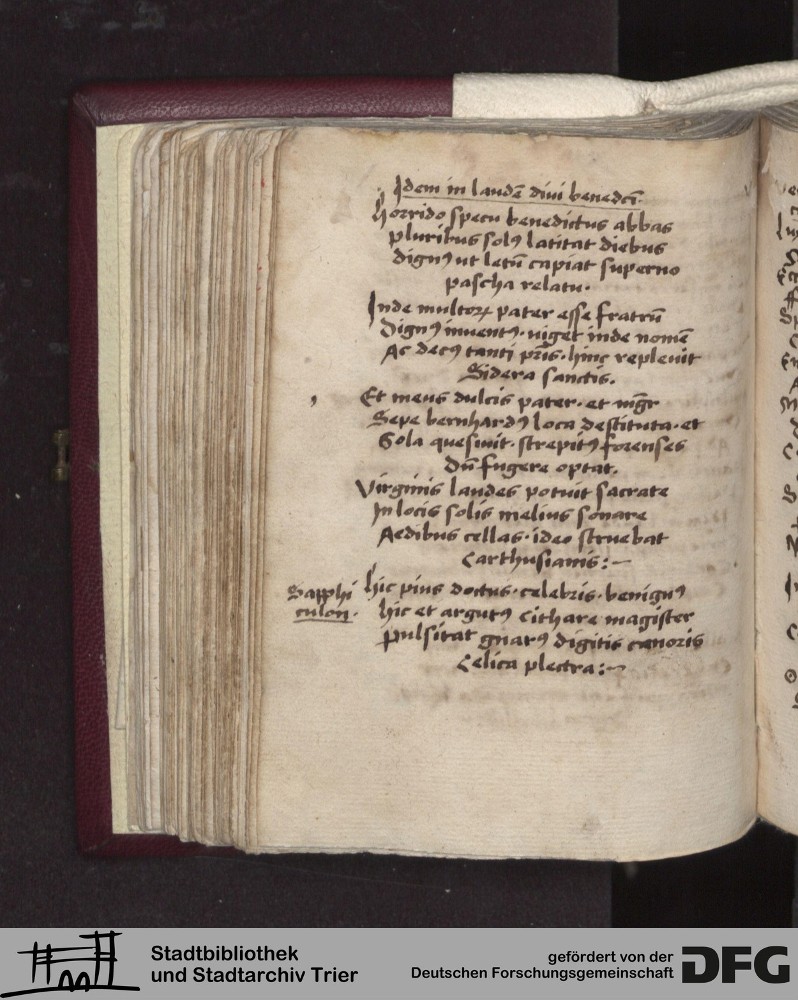 Idem in laudē diui benedcī·
Horrido specu benedictus abbas
pluribus solꝰ latitat diebus
dignꝰ ut letū capiat superno
pascha relatu·
Inde multoꝝ pater esse fratrū
Dignꝰ inuentꝰ· uiget inde nomē
Ac decꝰ tanti pr̄is· hinc repleuit
Sidera sanctis.
Et meus dulcis pater· et mḡr
Sepe bernhardꝰ loca destituta· et
Sola quesiuit· strepitꝰ forenses
Dū fugere optat.
Virginis laudes potuit sacrate
In locis solis melius sonare
Aedibus cellas· ideo struebat
Carthusianis:~
Sapphi
culon·
hic pius doctus· celebris· benignꝰ
hic et argutꝰ cithare magister
pulsitat gnarꝰ digitis canoris
Celica plectra:~
Stadtbibliothek
und Stadtarchiv Trier
gefördert von der
Deutschen Forschungsgemeinschaft
DFG